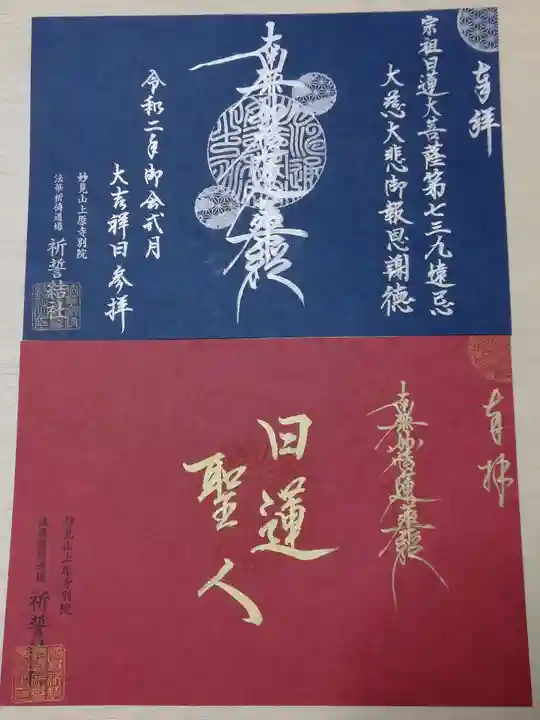 奉拝
宗祖日蓮大菩薩第七三九遠忌
大慈大悲御報恩謝徳
南無妙法蓮華経
令和二年御会式月
大吉祥日参拝
妙見山上原寺別院
法華祈祷道場
祈誓結社
奉拝
南無妙法蓮華経
日蓮
聖人
妙見山上原寺別院
法華祈祷道場
祈誓結社